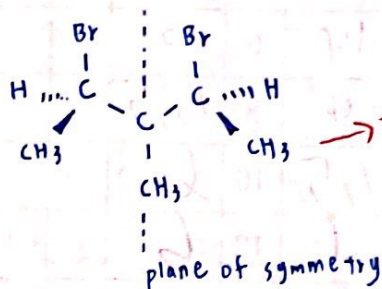 Br Br
H C C H
C
CH3 CH3
CH3
plane of symmetry